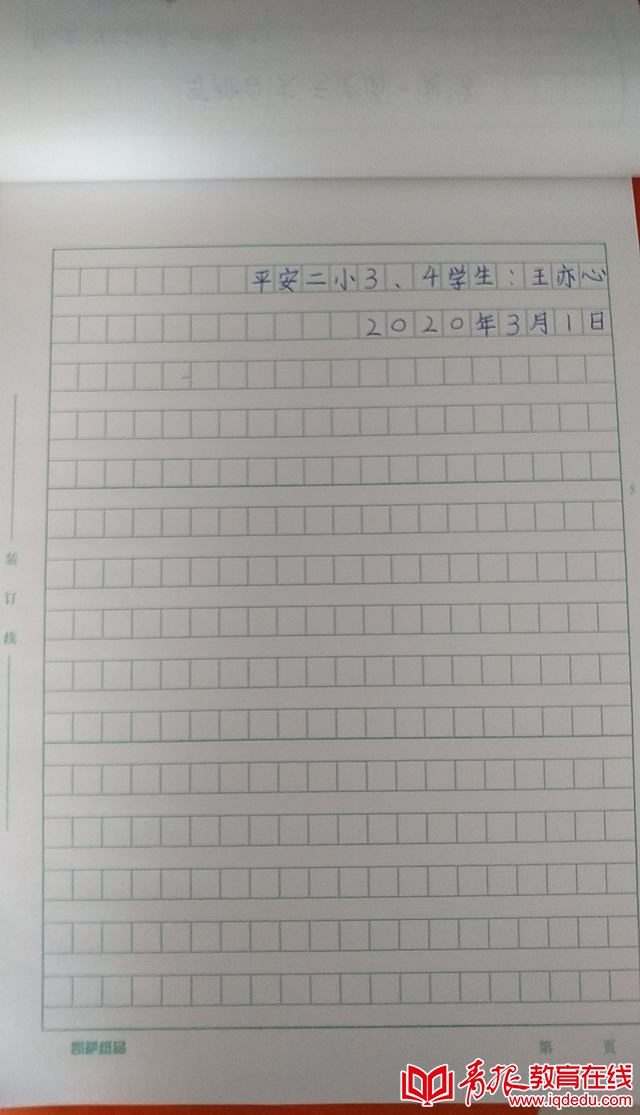 平安二小3、4学生:王亦心
2020年3月1日
5
装
订
线
第 页
青报教育在线
www.iqdedu.com